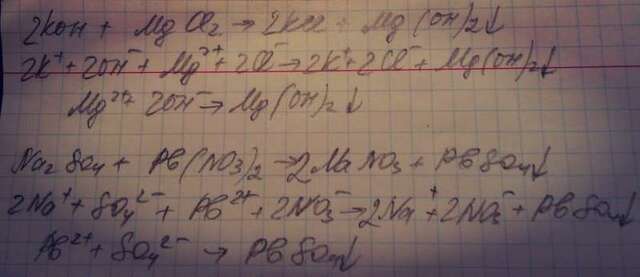 2KOH + MgCl₂ → 2KCl + Mg(OH)₂↓
2K⁺ + 2OH⁻ + Mg²⁺ + 2Cl⁻ → 2K⁺ + 2Cl⁻ + Mg(OH)₂↓
Mg²⁺ + 2OH⁻ → Mg(OH)₂↓
Na₂SO₄ + Pb(NO₃)₂ → 2NaNO₃ + PbSO₄↓
2Na⁺ + SO₄²⁻ + Pb²⁺ + 2NO₃⁻ → 2Na⁺ + 2NO₃⁻ + PbSO₄↓
Pb²⁺ + SO₄²⁻ → PbSO₄↓